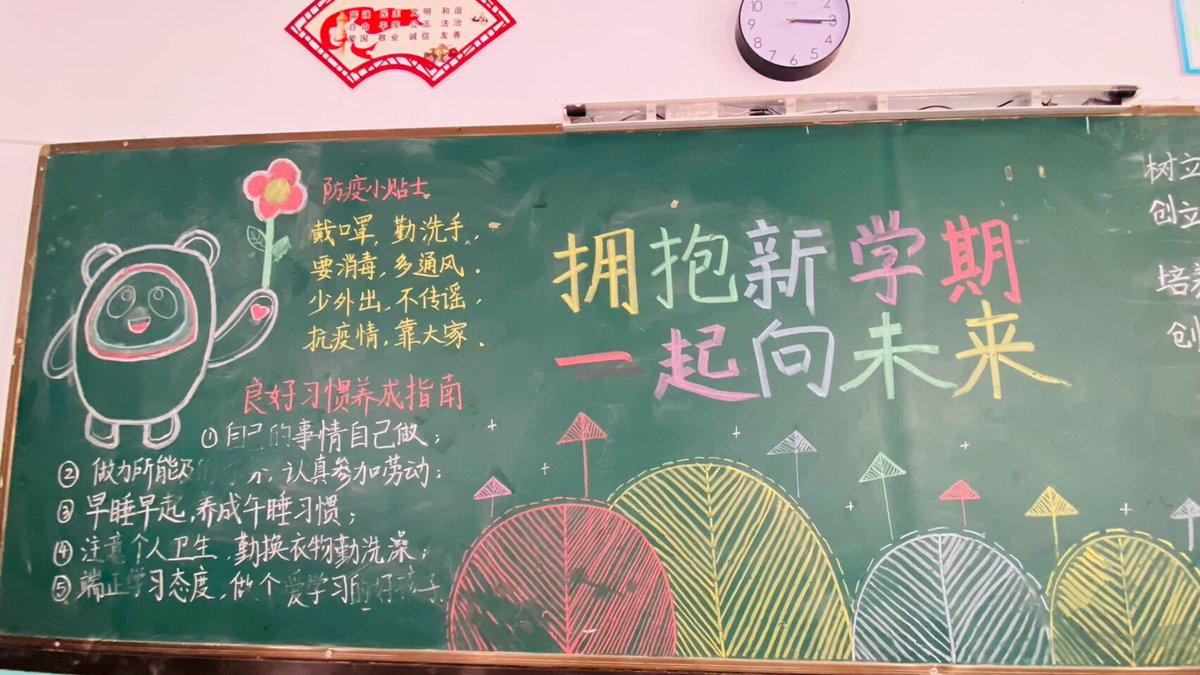 文明 和谐
自由 平等 公正 法治
爱国 敬业 诚信 友善
12
1
2
3
4
5
6
7
8
9
10
防疫小贴士
戴口罩,勤洗手,
要消毒,多通风.
少外出,不传谣,
抗疫情,靠大家.
良好习惯养成指南
①自己的事情自己做;
②做力所能及的 认真参加劳动;
③早睡早起,养成午睡习惯;
④注意个人卫生,勤换衣物勤洗澡;
⑤端正学习态度,做个爱学习的好孩子
拥抱新学期
一起向未来
树立
创立
培养
创